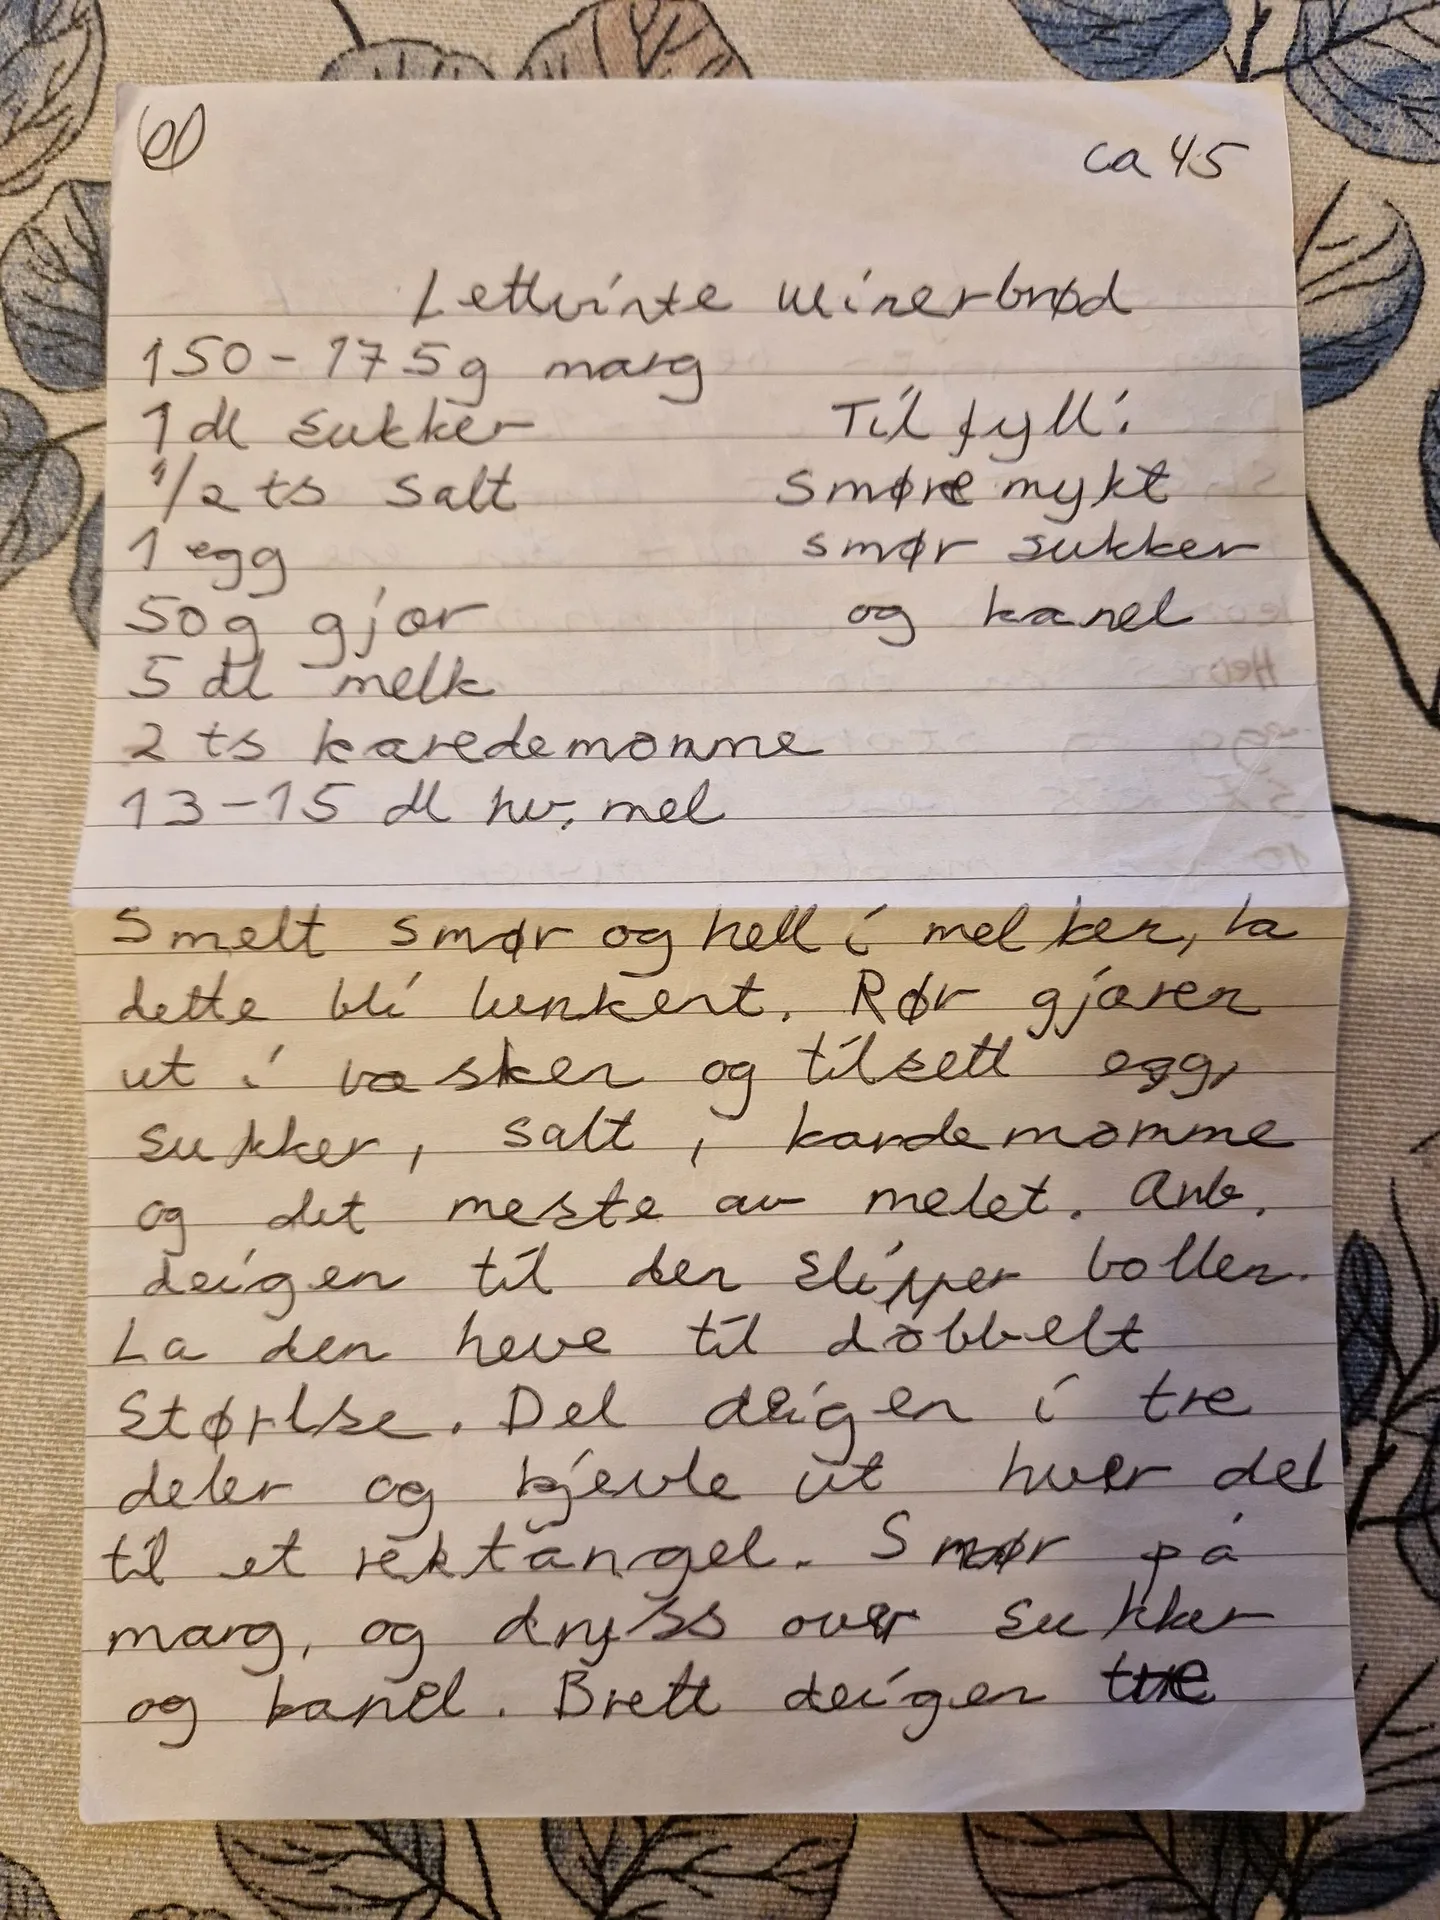 ca 45
Lettvinte Wienerbrød
150-175g marg
1 dl sukker
1/2 ts salt
1 egg
50g gjær
5 dl melk
2 ts karedemomme
13-15 dl hv. mel
Til fyll:
smøre mykt
smør sukker
og kanel
Smelt smør og hell i melken, la
dette bli lunkent. Rør gjæren
ut i væsken og tilsett egg,
sukker, salt, kardemomme
og det meste av melet. Arb.
deigen til den slipper bollen.
La den heve til dobbelt
størlse. Del deigen i tre
deler og kjevle ut hver del
til et rektangel. Smør på
marg, og dryss over sukker
og kanel. Brett deigen tre